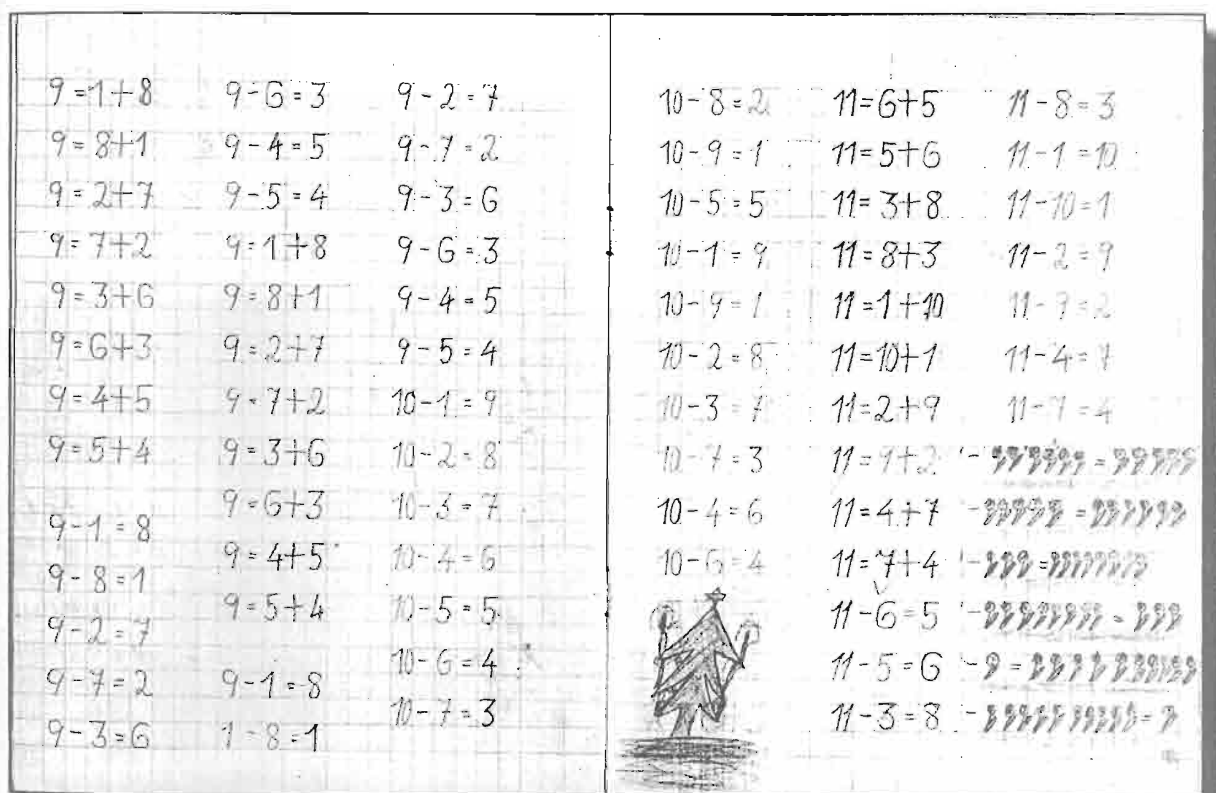 9=1+8
9=8+1
9=2+7
9=7+2
9=3+6
9=6+3
9=4+5
9=5+4
9-1=8
9-8=1
9-2=7
9-7=2
9-3=6
9-6=3
9-4=5
9-5=4
9=1+8
9=8+1
9=2+7
9=7+2
9=3+6
9=6+3
9=4+5
9=5+4
9-1=8
9-8=1
9-2=7
9-7=2
9-3=6
9-6=3
9-4=5
9-5=4
10-1=9
10-2=8
10-3=7
10-4=6
10-5=5
10-6=4
10-7=3
10-8=2
10-9=1
10-5=5
10-1=9
10-9=1
10-2=8
10-3=7
10-7=3
10-4=6
10-6=4
11=6+5
11=5+6
11=3+8
11=8+3
11=1+10
11=10+1
11=2+9
11=9+2
11=4+7
11=7+4
11-6=5
11-5=6
11-3=8
11-8=3
11-1=10
11-10=1
11-2=9
11-9=2
11-4=7
11-7=4